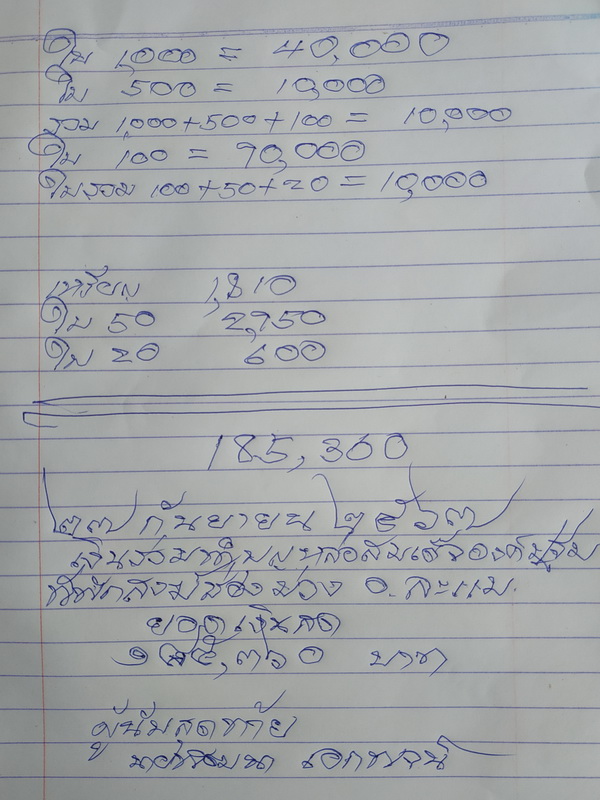 ใบ 1,000 = 40,000
ใบ 500 = 10,000
รวม 1,000+500+100 = 10,000
ใบ 100 = 90,000
ใบรวม 100+50+20 = 10,000
เหรียญ 1,810
ใบ 50 2,950
ใบ 20 600
185,360
๒๗ กันยายน ๒๕๖๗
เงินร่วมทำบุญหล่อสมเด็จองค์ปฐม
ที่พักสงฆ์ อ.ละแม.
ยอดเงินสด
๑๘๕,๓๖๐ บาท
ผู้นับสุดท้าย